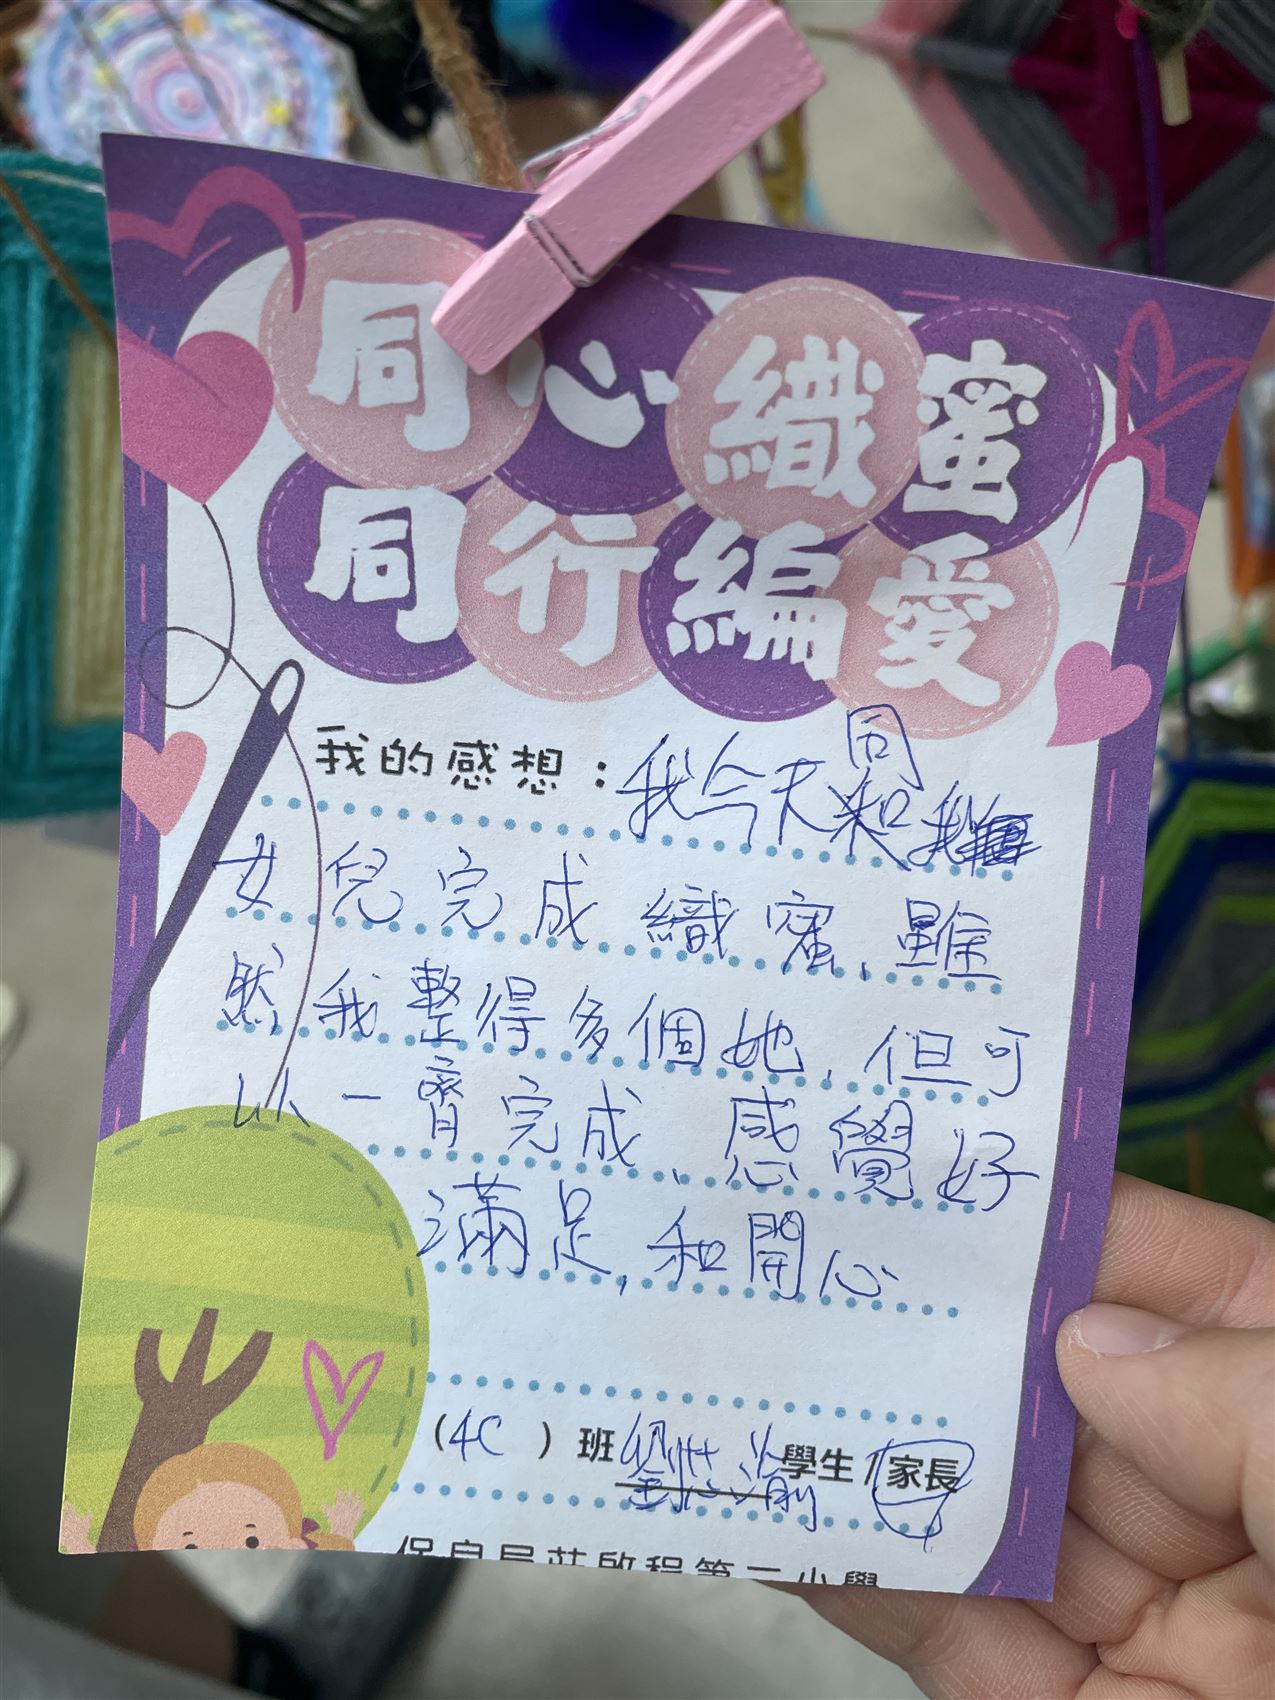 同心織蜜
同行編愛
我的感想：我今天同和我
女兒完成織蜜，雖
然我整得多個她，但可
以一齊完成、感覺好
滿足，和開心
（4C）班 劉 學生/家長
保良局莊啟程第二小學